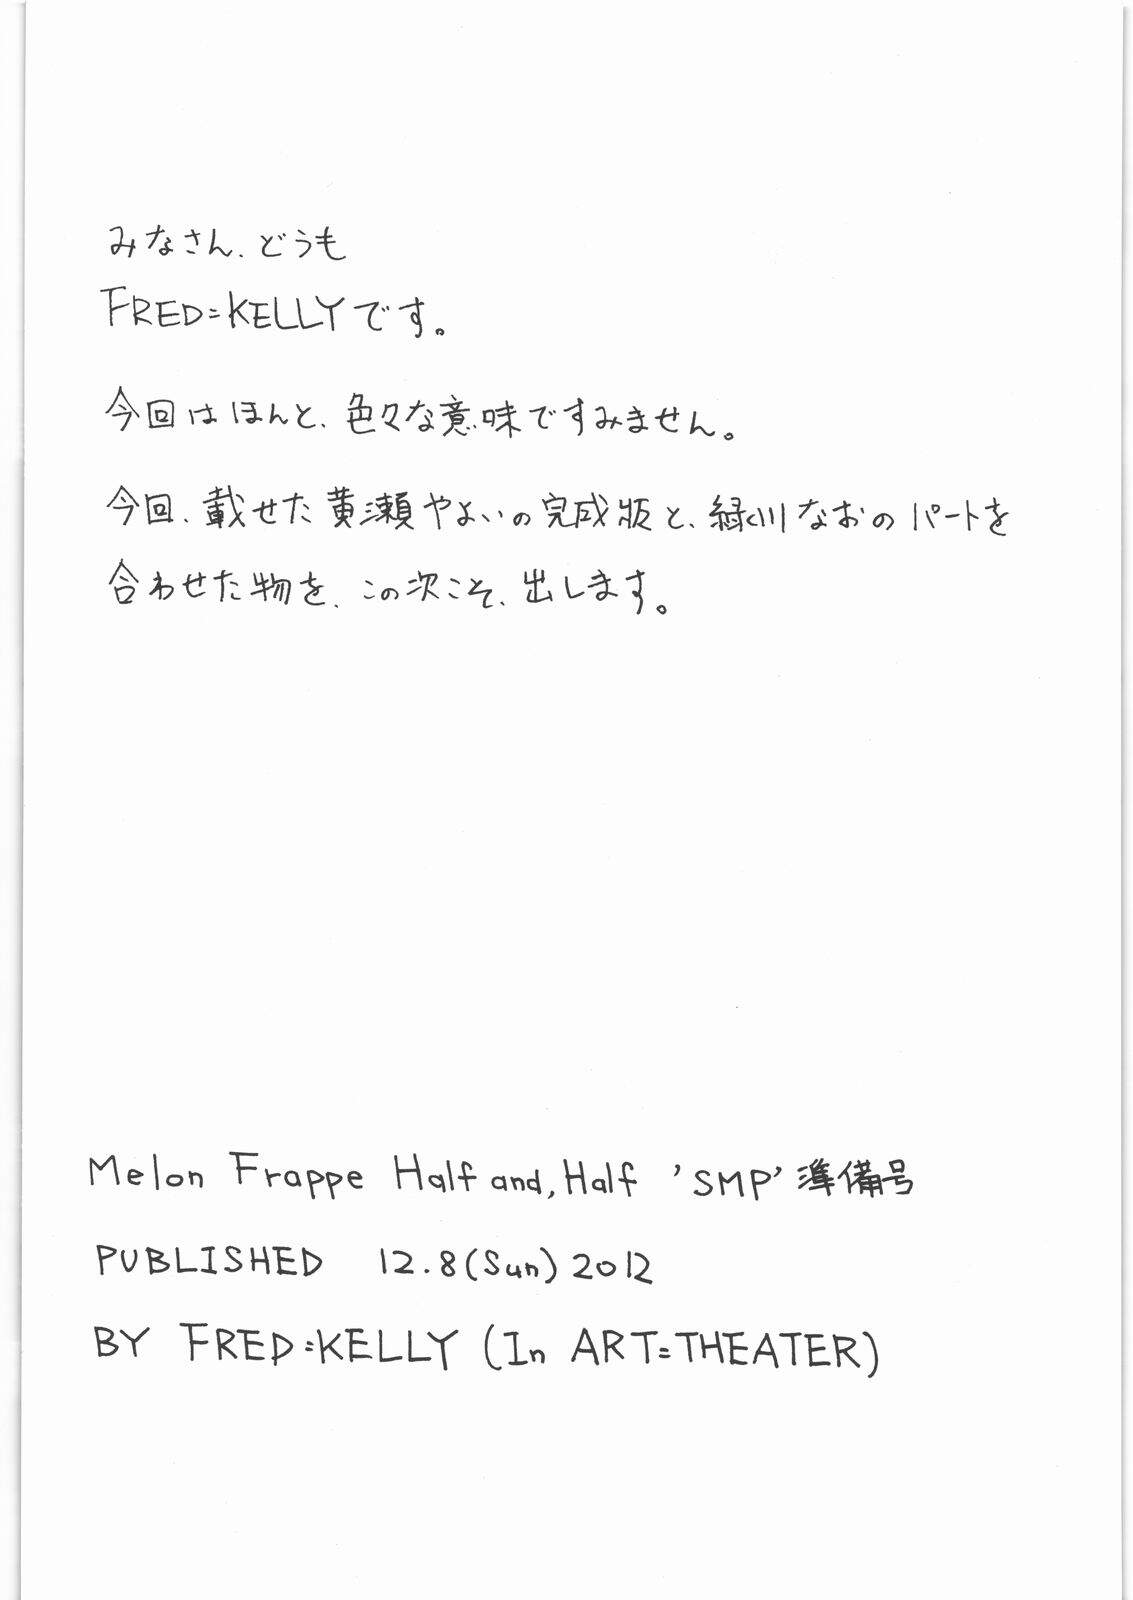 みなさん、どうも
FRED=KELLYです。
今回はほんと、色々な意味ですみません。
今回、載せた黄瀬やよいの完成版と、緑川なおのパートを
合わせた物を、この次こそ、出します。
Melon Frappe Half and, Half 'SMP' 準備号
PUBLISHED 12.8(Sun) 2012
BY FRED=KELLY (In ART=THEATER)